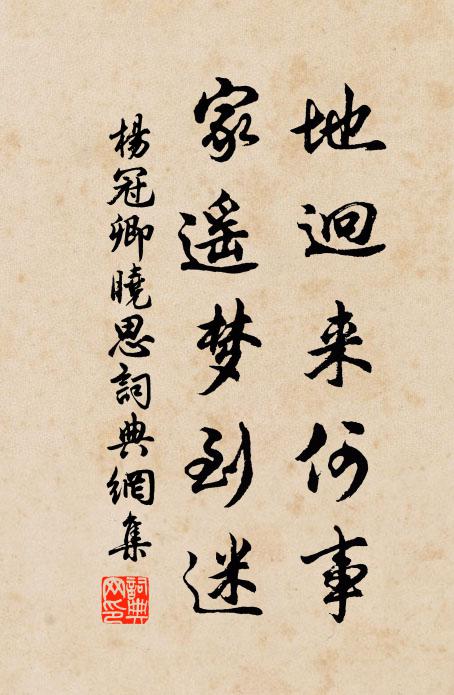 地迥来何事
家遥梦到迷
楊冠卿曉思詞典網集
詞典网印